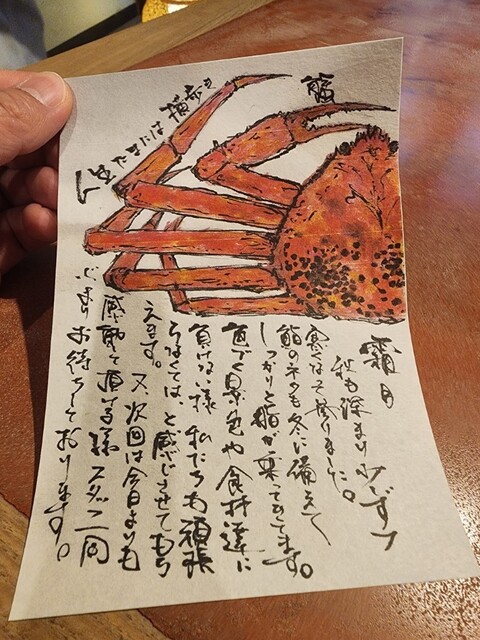 鮨
霜月
秋も深まり少しずつ
寒くなって参りました。
鮨のネタも冬に備えて
しっかりと脂が乗ってきてます。
色づく景色や食材達に
負けない様 私たちも頑張
らなくては と感じさせてもら
えます。
又、次回は今日よりも
感動して頂ける様 スタッフ一同
心よりお待ちしております。